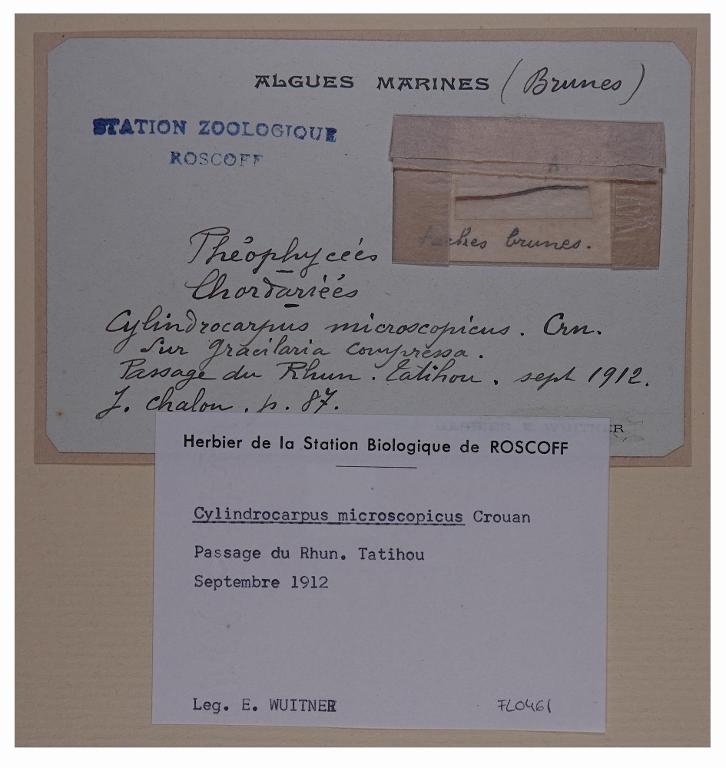 ALGUES MARINES (Brunes)
STATION ZOOLOGIQUE
ROSCOFF
A.
taches brunes.
Phéophycées
Chordariéés
Cylindrocarpus microscopicus. Crn.
Sur gracilaria compressa.
Passage du Rhun. Tatihou. sept 1912.
J. Chalon. p. 87.
ER
Herbier de la Station Biologique de ROSCOFF
Cylindrocarpus microscopicus Crouan
Passage du Rhun. Tatihou
Septembre 1912
Leg. E. WUITNER
FL0461